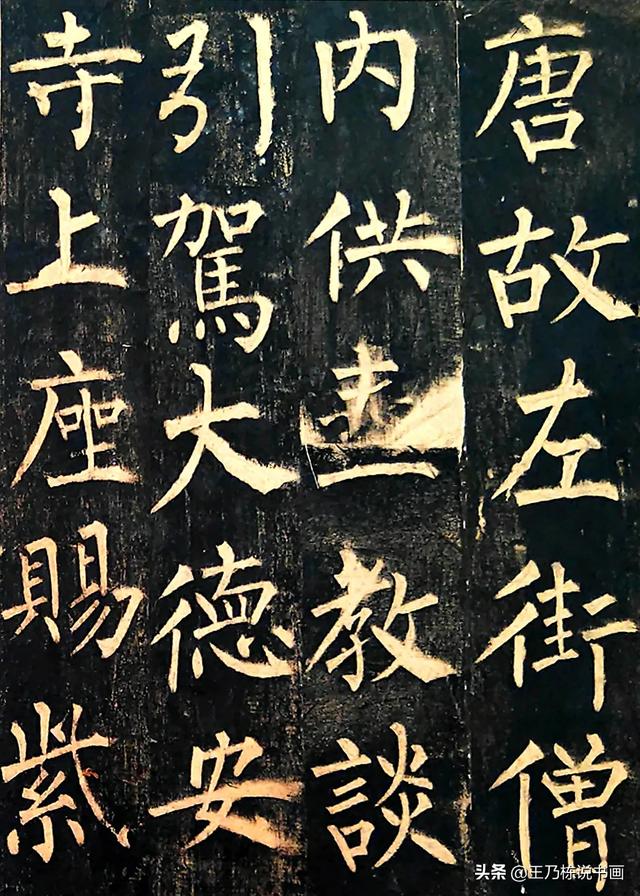 唐故左街僧
内供教談
引駕大德安
寺上座賜紫
头条 @王乃栋说书画